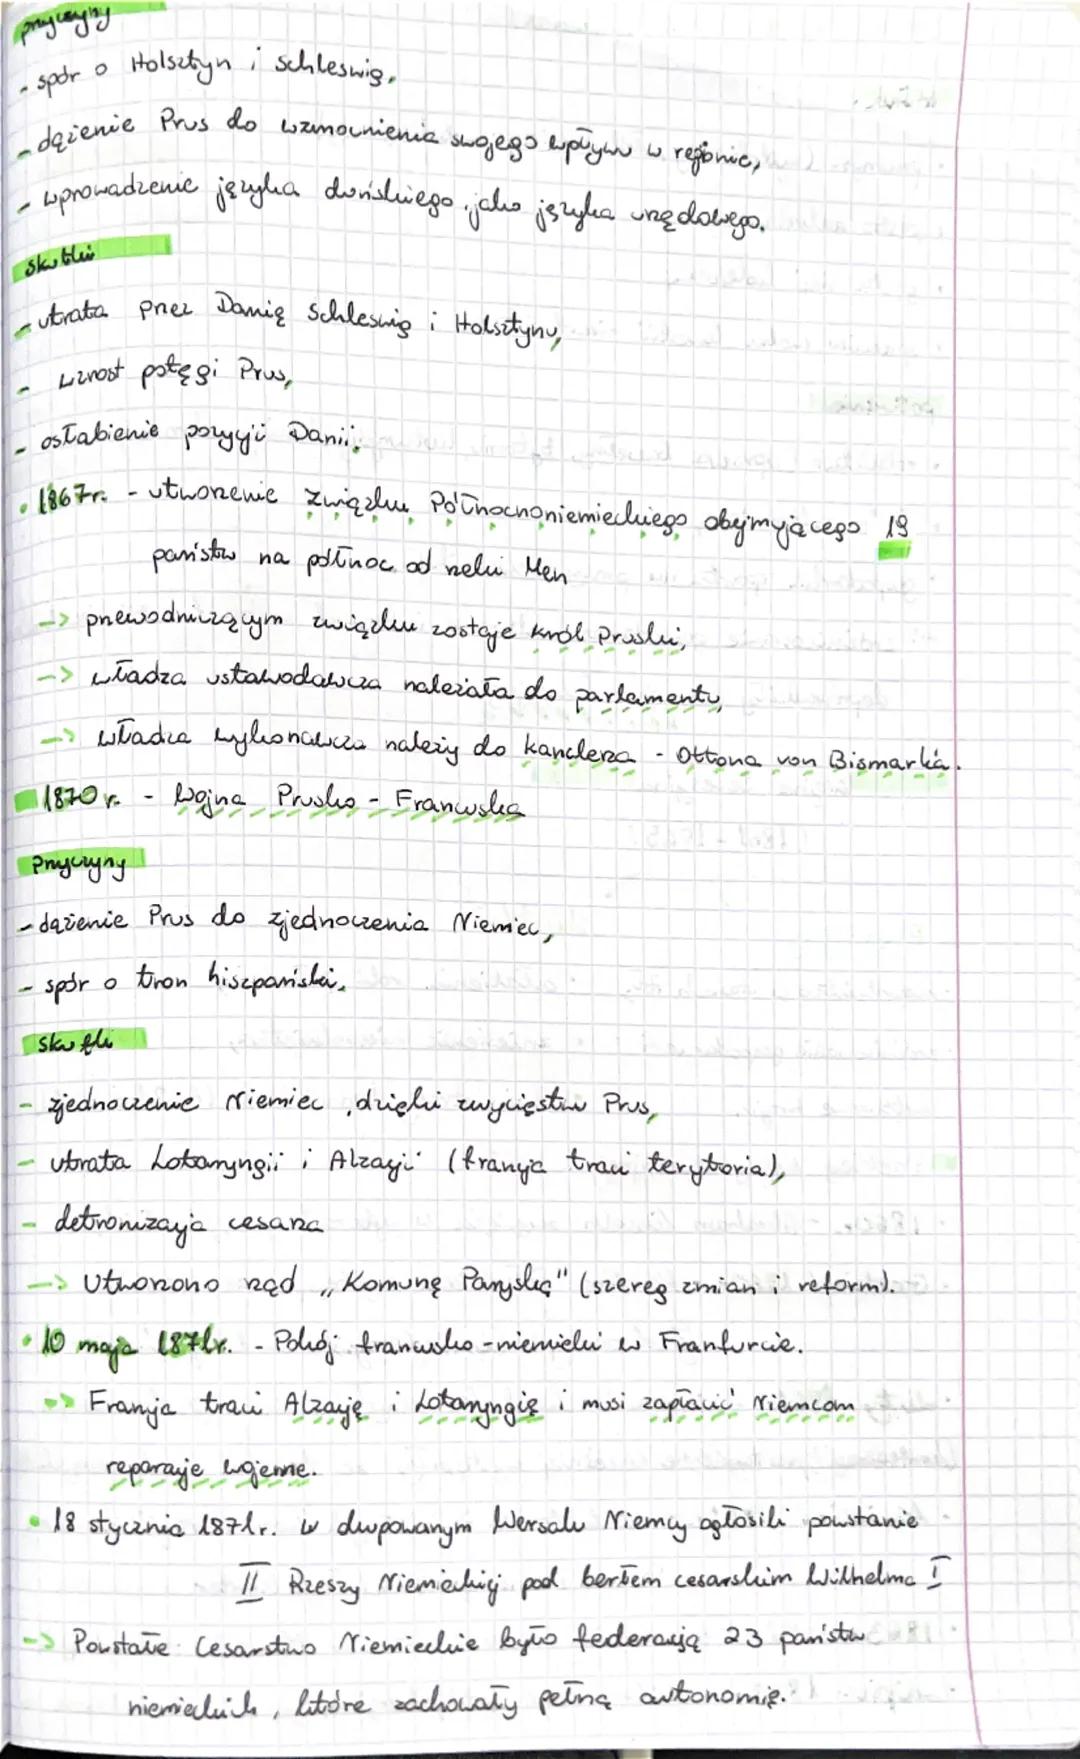 przyczyny
- spór o Holsztyn i Schleswig,
- dążenie Prus do wzmocnienia swojego wpływu w regionie,
- wprowadzenie języka duńskiego jako języka urzędowego.
skutki
- utrata przez Danię Schleswig i Holsztynu,
- wzrost potęgi Prus,
- osłabienie pozycji Danii.
• 1867r. - utworzenie Związku Północnoniemieckiego obejmującego 19
państw na północ od rzeki Men
-> przewodniczącym związku zostaje król Pruski,
-> władza ustawodawcza należała do parlamentu,
-> władza wykonawcza należy do kanclerza - Ottona von Bismarka.
1870 r. - Wojna Prusko - Francuska
Przyczyny
- dążenie Prus do zjednoczenia Niemiec,
- spór o tron hiszpański.
Skutki
- zjednoczenie Niemiec, dzięki zwycięstwu Prus,
- utrata Lotaryngii i Alzacji (francja traci terytoria),
- detronizacja cesarza
-> Utworzono rząd „Komunę Paryską" (szereg zmian i reform).
• 10 maja 1871r. - Pokój francusko-niemiecki w Franfurcie.
-> Francja traci Alzację i Lotaryngię i musi zapłacić Niemcom
reparacje wojenne.
• 18 stycznia 1871r. w okupowanym Wersalu Niemcy ogłosili powstanie
II Rzeszy Niemieckiej pod berłem cesarskim Wilhelma I
-> Powstałe Cesarstwo Niemieckie było federacją 23 państw
niemieckich, które zachowały pełną autonomię.